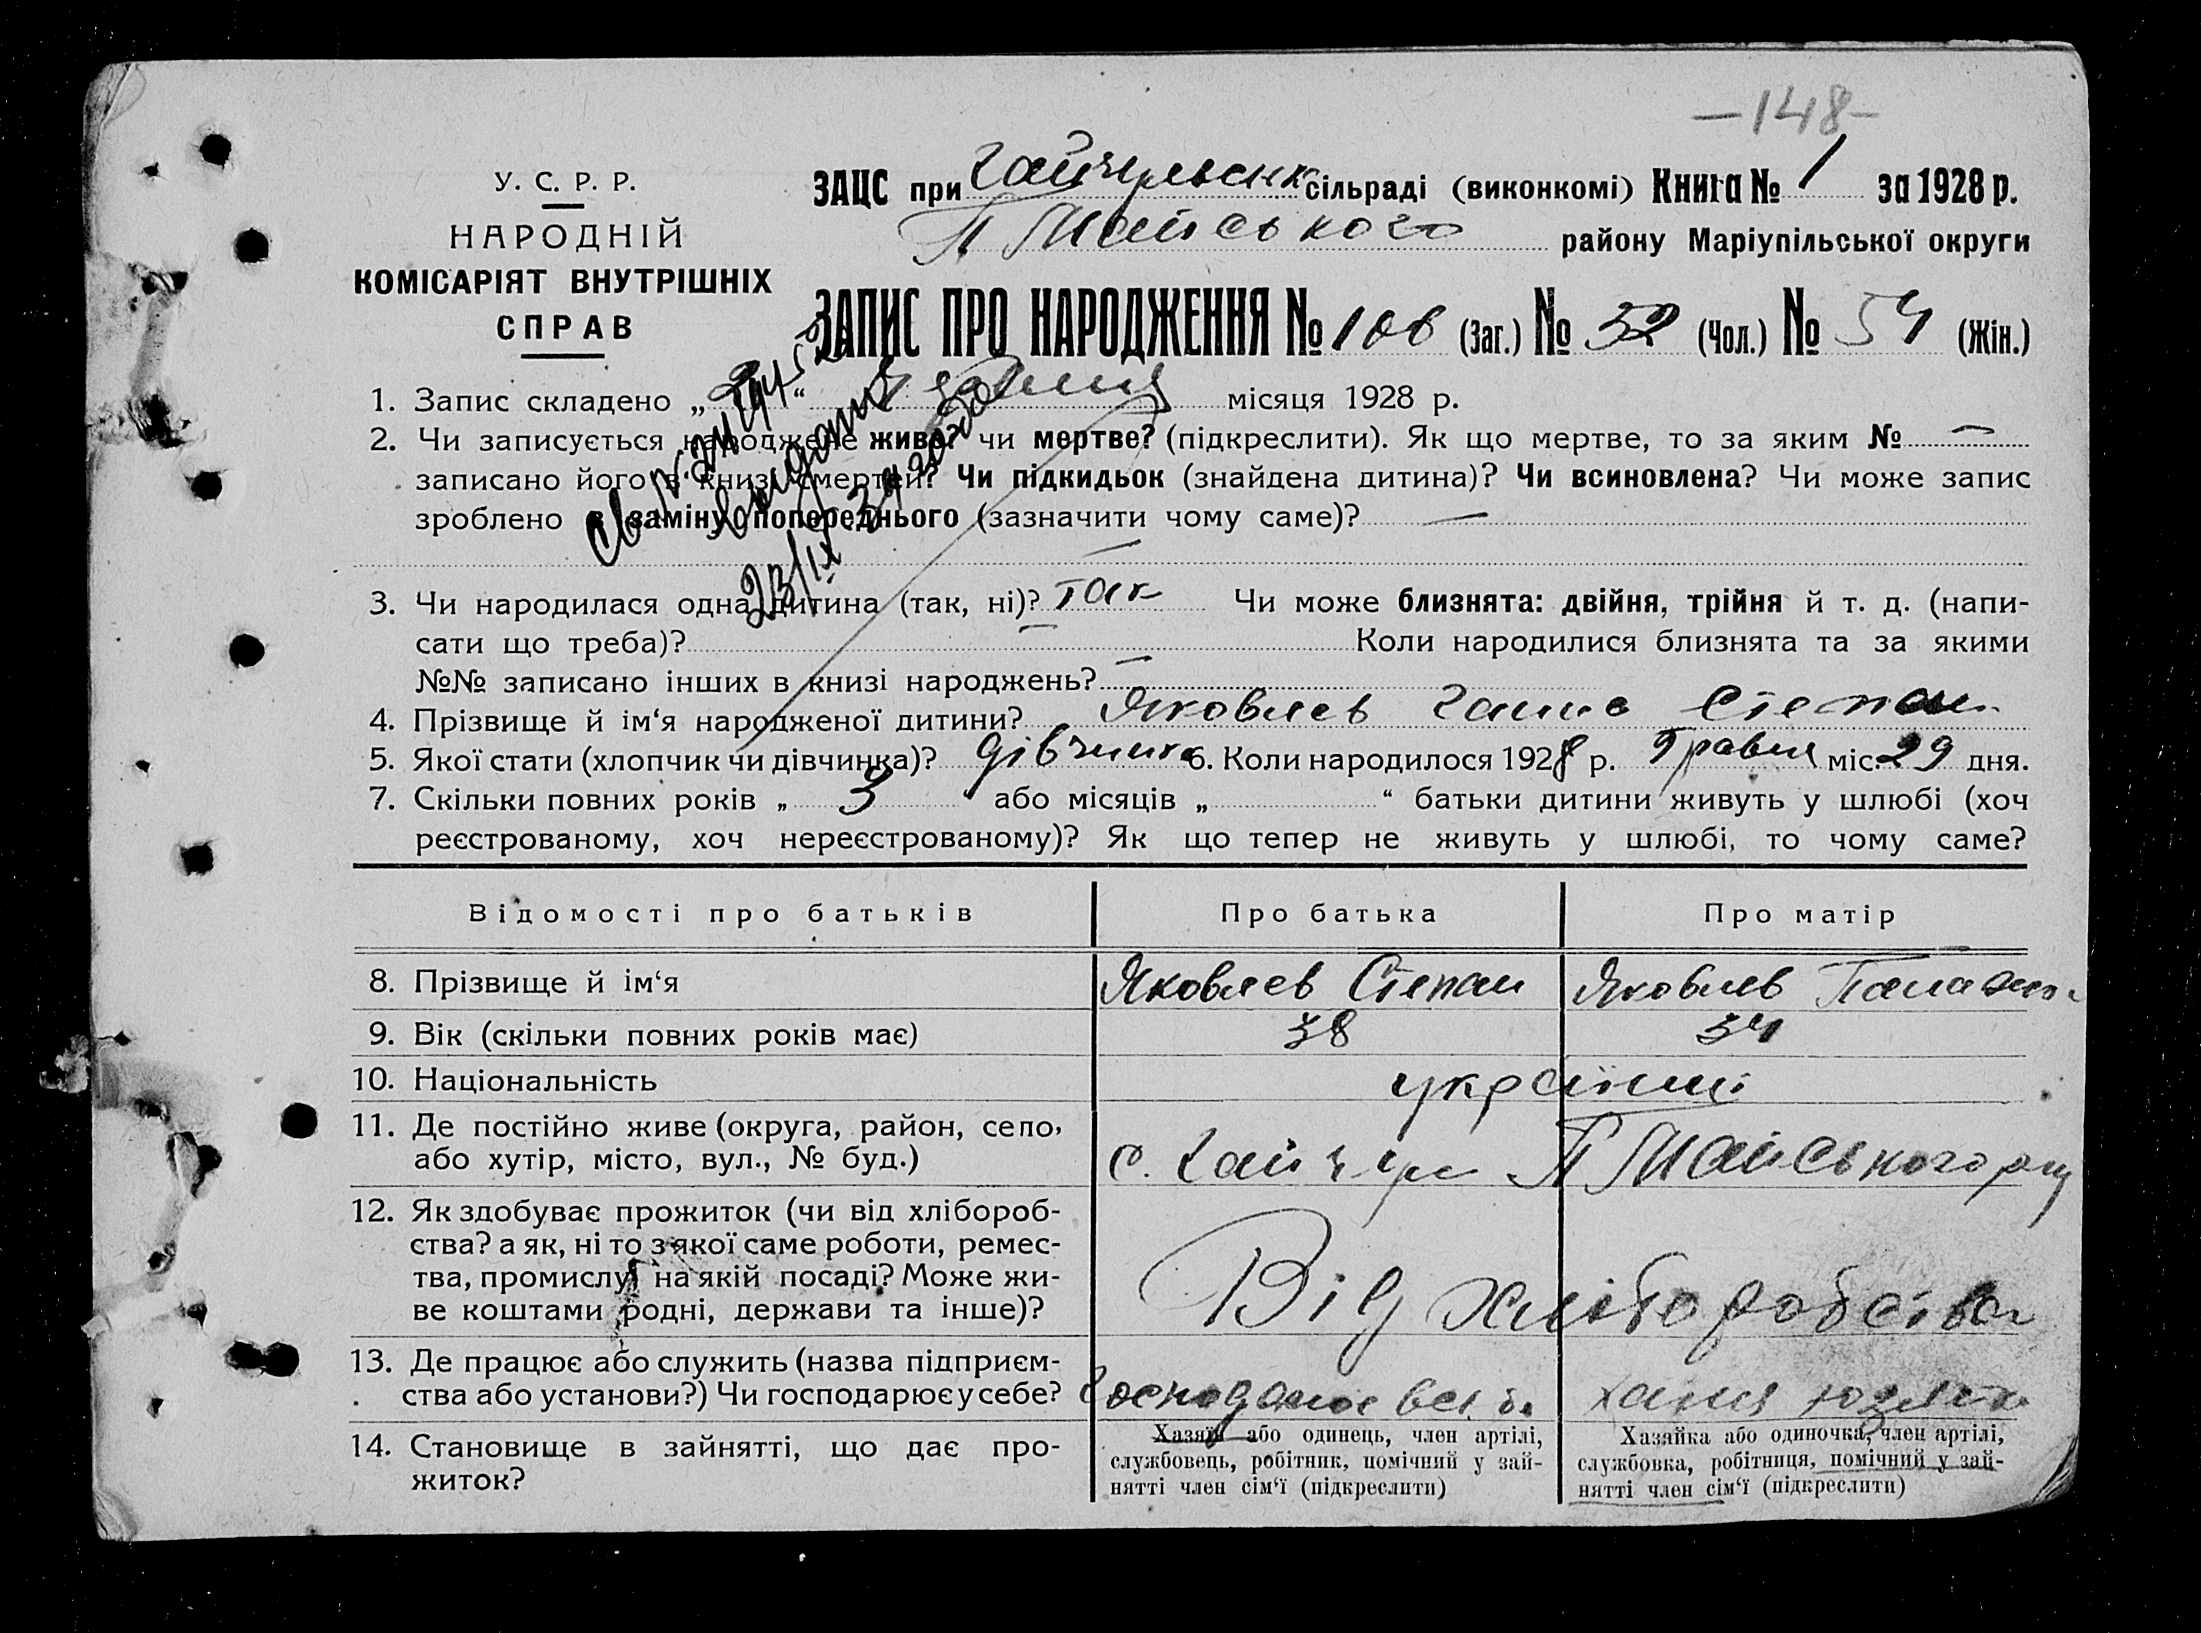 —148—
У. С. Р. Р.
НАРОДНІЙ
КОМІСАРІЯТ ВНУТРІШНІХ
СПРАВ
ЗАЦС при Гайчульськ сільраді (виконкомі) Книга № 1 за 1928 р.
П Майського району Маріупільської округи
ЗАПИС ПРО НАРОДЖЕННЯ № 106 (Заг.) № 52 (Чол.) № 54 (Жін.)
1. Запис складено „ “ місяця 1928 р.
2. Чи записується народжене живе? чи мертве? (підкреслити). Як що мертве, то за яким № —
записано його в книзі смертей? Чи підкидьок (знайдена дитина)? Чи всиновлена? Чи може запис
зроблено в заміну попереднього (зазначити чому саме)? —
—
3. Чи народилася одна дитина (так, ні)? Так Чи може близнята: двійня, трійня й т. д. (напи-
сати що треба)? — Коли народилися близнята та за якими
№№ записано інших в книзі народжень? —
4. Прізвище й ім‘я народженої дитини? Яковлєв Ганна Степан
5. Якої стати (хлопчик чи дівчинка)? дівчинка 6. Коли народилося 1928 р. Травня міс. 29 дня.
7. Скільки повних років „ 3 “ або місяців „ “ батьки дитини живуть у шлюбі (хоч
реєстрованому, хоч нереєстрованому)? Як що тепер не живуть у шлюбі, то чому саме?
Відомості про батьків Про батька Про матір
8. Прізвище й ім‘я Яковлєв Степан Яковлєв
9. Вік (скільки повних років має) 38 34
10. Національність українці
11. Де постійно живе (округа, район, село,
або хутір, місто, вул., № буд.) с. Гайчул П Майського р-ну
12. Як здобуває прожиток (чи від хлібороб-
ства? а як, ні то з якої саме роботи, ремес-
тва, промислу, на якій посаді? Може жи-
ве коштами родні, держави та інше)? Від хліборобства
13. Де працює або служить (назва підприєм-
ства або установи?) Чи господарює у себе?
14. Становище в зайнятті, що дає про-
житок?
Хазяїн або одинець, член артілі,
службовець, робітник, помічний у зай-
нятті член сім‘ї (підкреслити)
Хазяйка або одиночка, член артілі,
службовка, робітниця, помічний у зай-
нятті член сім‘ї (підкреслити)